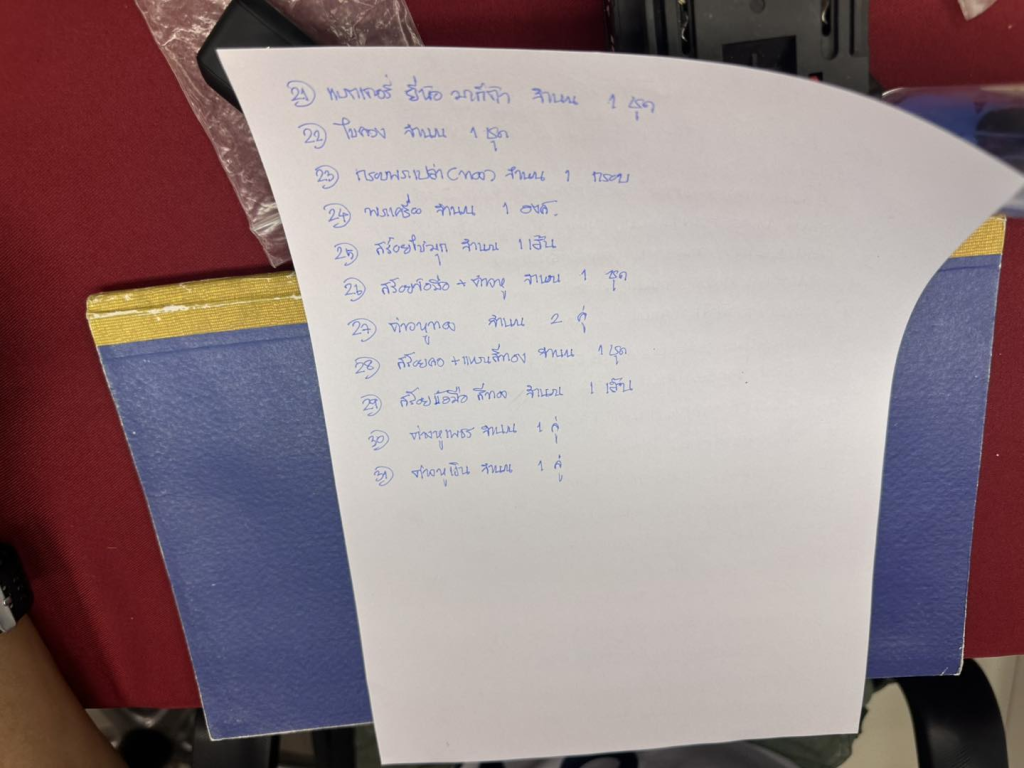 21) แบตเตอรี่ ยี่ห้อ มากีต้า จำนวน 1 ชุด
22) ไขควง จำนวน 1 ชุด
23) กรอบพระเปล่า (ทอง) จำนวน 1 กรอบ
24) พระเครื่อง จำนวน 1 องค์.
25) สร้อยไข่มุก จำนวน 1 เส้น
26) สร้อยข้อมือ + ต่างหู จำนวน 1 ชุด
27) ต่างหูทอง จำนวน 2 คู่
28) สร้อยคอ + แหวนสีทอง จำนวน 1 ชุด
29) สร้อยข้อมือ สีทอง จำนวน 1 เส้น
30) ต่างหูเพชร จำนวน 1 คู่
31) ต่างหูเงิน จำนวน 1 คู่